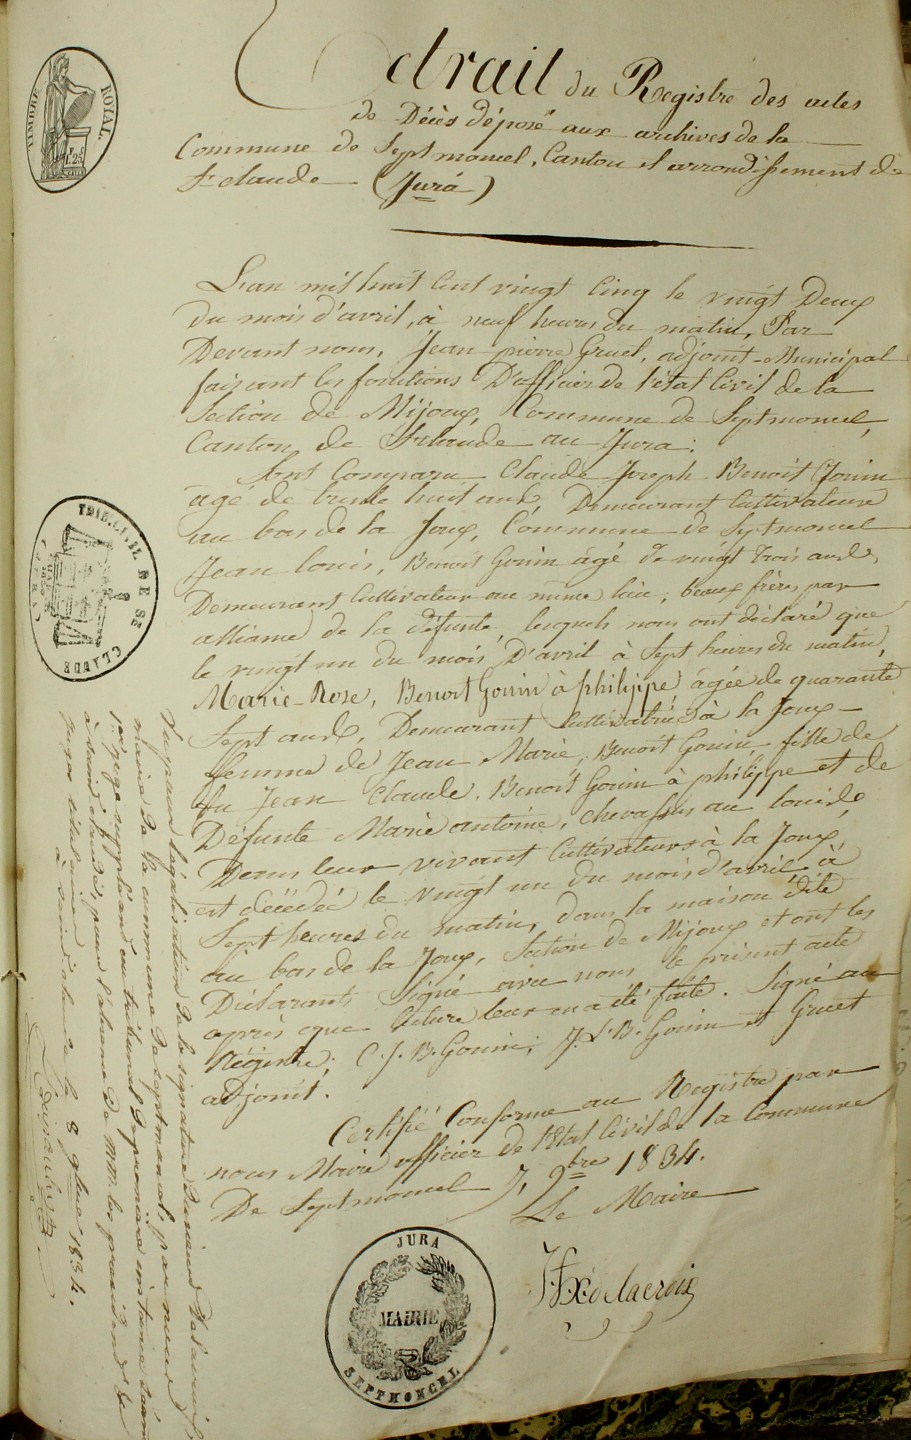 Extrait du Registre des actes
de Décès déposé aux archives de la
Commune de Septmoncel, Canton et arrondissement de
St claude (Jura)
L'an mil huit Cent vingt Cinq le vingt Deux
du mois d'avril, à neuf heures du matin, Par
Devant nous, Jean pierre Gruet, adjoint Municipal
faisant les fonctions D'officier de l'état Civil de la
Section de Mijoux, Commune de Septmoncel,
Canton de St claude au Jura;
Sont Comparu Claude Joseph Benoit Gonin
âgé de trente huit ans, Demeurant Cultivateur
au bas de la Joux, Commune de Septmoncel
Jean louis, Benoit Gonin âgé de vingt trois ans,
Demeurant Cultivateur au même lieu, beaux frères par
alliance de la défunte, lesquels nous ont déclaré que
le vingt un du mois D'avril à Sept heures du matin,
Marie-Rose, Benoit Gonin à philippe, âgée de quarante
Sept ans, Demeurant Cultivatrice à la Joux
femme de Jean Marie, Benoit Gonin, fille de
fu Jean Claude, Benoit Gonin à philippe et de
Défunte Marie antoine, chevassus au louis,
Deans leur vivant Cultivateurs à la Joux,
est décédée le vingt un du mois d'avril à
Sept heures du matin, dans la maison dite
au bas de la Joux, Section de Mijoux et ont les
Déclarants Signé avec nous le présent acte
après que lecture leur en a été faite. Signé au
Régistre; C. J. B. Gonin; J. L. B. Gonin et Gruet
adjoint.
Certifié Conforme au Registre par
nous Maire officier de l'état Civil de la Commune
De Septmoncel 7, 9bre 1834.
Le Maire
J.F.X. delacroix
TIMBRE ROYAL
1 F. 25 C.
TRIB. CIVIL DE St
CLAUDE
JURA
MAIRIE
SEPTMONCEL
Vu pour légalisation de la signature
maire de la commune de septmoncel, par nous
1er juge suppléant au tribunal de première instance séant
à Saint claude, pour l'absence de MM. les président et
juges titulaires
à Saint claude le 8 9bre 1834.